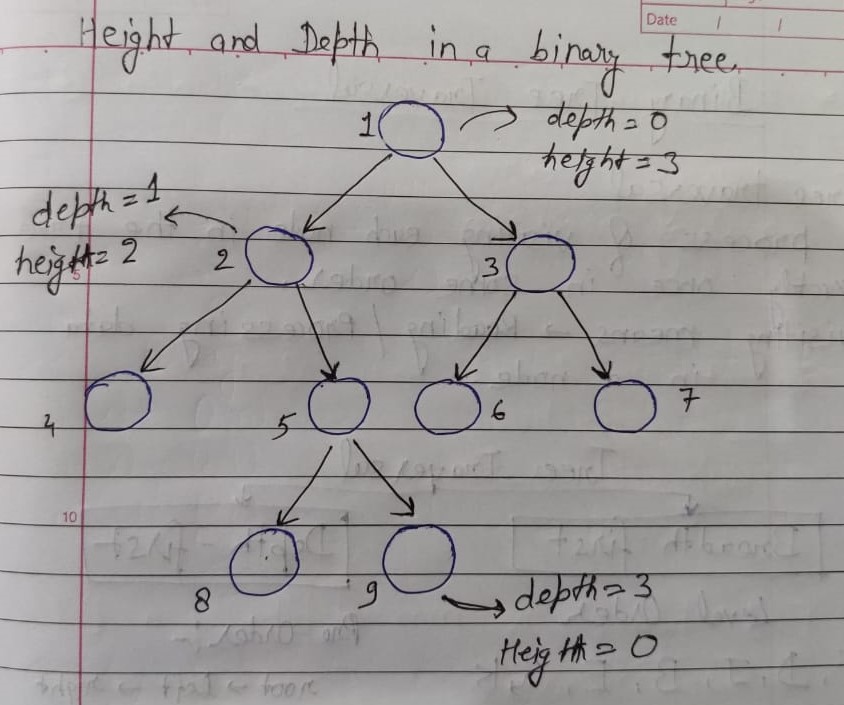 Date / /
Height and Depth in a binary tree.
1
depth = 0
height = 3
depth = 1
height = 2
2
3
5
4
5
6
7
10
8
9
depth = 3
Height = 0